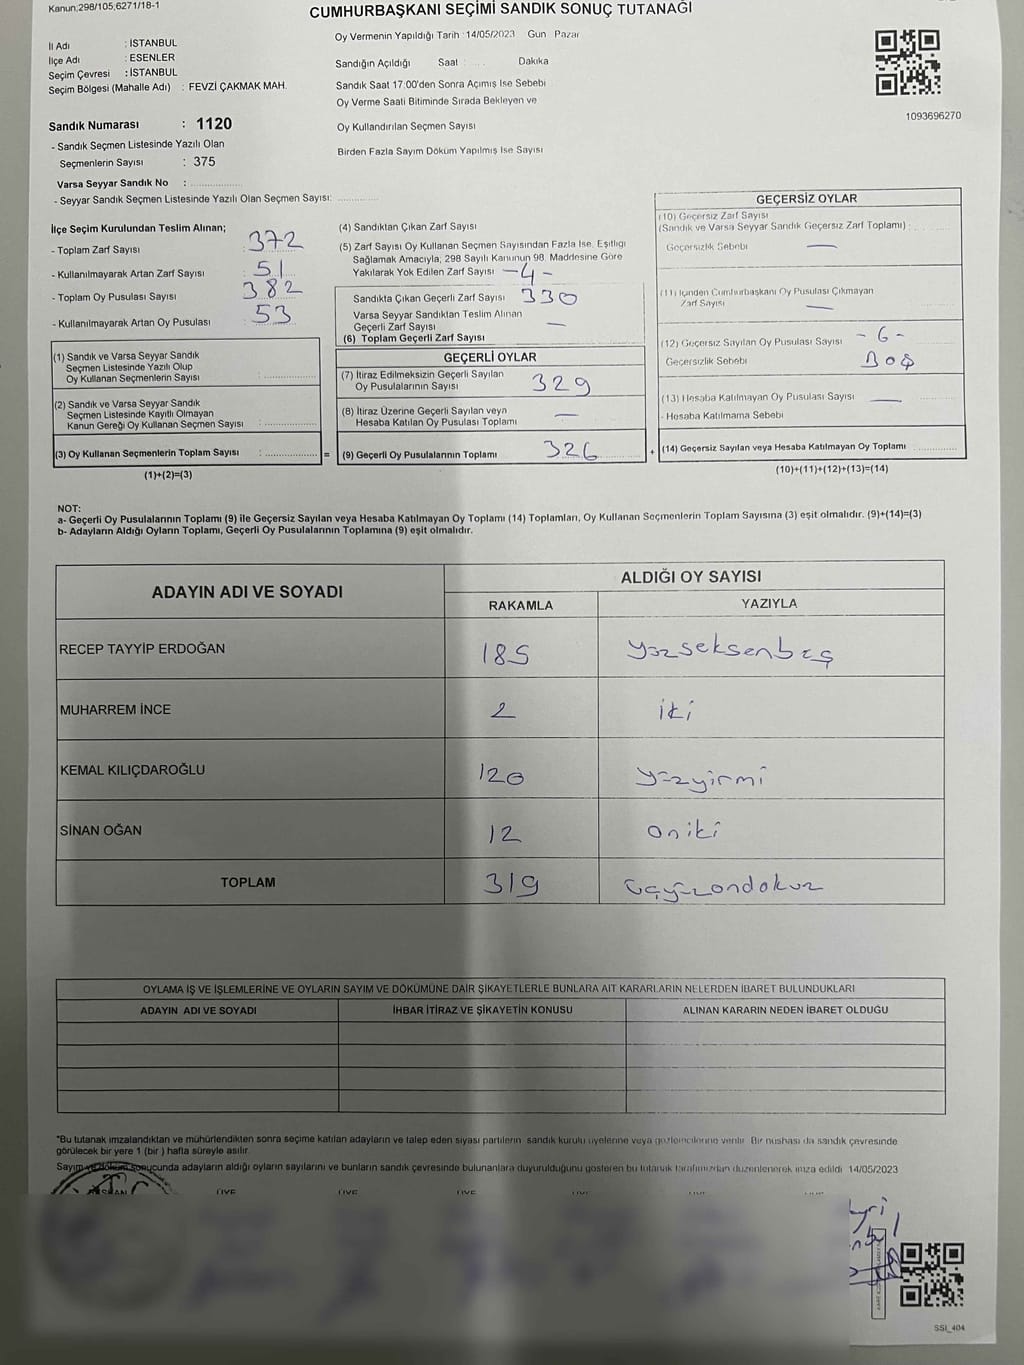 Kanun;298/105;6271/18-1
CUMHURBAŞKANI SEÇİMİ SANDIK SONUÇ TUTANAĞI
İl Adı : İSTANBUL
İlçe Adı : ESENLER
Seçim Çevresi : İSTANBUL
Seçim Bölgesi (Mahalle Adı) : FEVZİ ÇAKMAK MAH.
Oy Vermenin Yapıldığı Tarih : 14/05/2023 Gün Pazar
Sandığın Açıldığı Saat : ..... Dakika
Sandık Saat 17:00'den Sonra Açımış İse Sebebi
Oy Verme Saati Bitiminde Sırada Bekleyen ve
Oy Kullandırılan Seçmen Sayısı
Birden Fazla Sayım Döküm Yapılmış İse Sayısı
1093696270
Sandık Numarası : 1120
- Sandık Seçmen Listesinde Yazılı Olan
Seçmenlerin Sayısı : 375
Varsa Seyyar Sandık No : ..................
- Seyyar Sandık Seçmen Listesinde Yazılı Olan Seçmen Sayısı: ..............
İlçe Seçim Kurulundan Teslim Alınan;
- Toplam Zarf Sayısı : 372
- Kullanılmayarak Artan Zarf Sayısı : 51
- Toplam Oy Pusulası Sayısı : 382
- Kullanılmayarak Artan Oy Pusulası : 53
(1) Sandık ve Varsa Seyyar Sandık
Seçmen Listesinde Yazılı Olup
Oy Kullanan Seçmenlerin Sayısı : ..............
(2) Sandık ve Varsa Seyyar Sandık
Seçmen Listesinde Kayıtlı Olmayan
Kanun Gereği Oy Kullanan Seçmen Sayısı : ..............
(3) Oy Kullanan Seçmenlerin Toplam Sayısı : .............. =
(1)+(2)=(3)
(4) Sandıktan Çıkan Zarf Sayısı
(5) Zarf Sayısı Oy Kullanan Seçmen Sayısından Fazla İse, Eşitliği
Sağlamak Amacıyla; 298 Sayılı Kanunun 98. Maddesine Göre
Yakılarak Yok Edilen Zarf Sayısı -4-
Sandıkta Çıkan Geçerli Zarf Sayısı 330
Varsa Seyyar Sandıktan Teslim Alınan
Geçerli Zarf Sayısı —
(6) Toplam Geçerli Zarf Sayısı
GEÇERLİ OYLAR
(7) İtiraz Edilmeksizin Geçerli Sayılan
Oy Pusulalarının Sayısı 329
(8) İtiraz Üzerine Geçerli Sayılan veya
Hesaba Katılan Oy Pusulası Toplamı —
(9) Geçerli Oy Pusulalarının Toplamı 326 +
GEÇERSİZ OYLAR
(10) Geçersiz Zarf Sayısı
(Sandık ve Varsa Seyyar Sandık Geçersiz Zarf Toplamı) : ..........
Geçersizlik Sebebi —
(11) İçinden Cumhurbaşkanı Oy Pusulası Çıkmayan
Zarf Sayısı —
(12) Geçersiz Sayılan Oy Pusulası Sayısı -6-
Geçersizlik Sebebi Boş
(13) Hesaba Katılmayan Oy Pusulası Sayısı —
- Hesaba Katılmama Sebebi
(14) Geçersiz Sayılan veya Hesaba Katılmayan Oy Toplamı ..........
(10)+(11)+(12)+(13)=(14)
NOT:
a- Geçerli Oy Pusulalarının Toplamı (9) ile Geçersiz Sayılan veya Hesaba Katılmayan Oy Toplamı (14) Toplamları, Oy Kullanan Seçmenlerin Toplam Sayısına (3) eşit olmalıdır. (9)+(14)=(3)
b- Adayların Aldığı Oyların Toplamı, Geçerli Oy Pusulalarının Toplamına (9) eşit olmalıdır.
ADAYIN ADI VE SOYADI
ALDIĞI OY SAYISI
RAKAMLA YAZIYLA
RECEP TAYYİP ERDOĞAN 185 yüzseksenbeş
MUHARREM İNCE 2 iki
KEMAL KILIÇDAROĞLU 120 yüzyirmi
SİNAN OĞAN 12 oniki
TOPLAM 319 üçyüzondokuz
OYLAMA İŞ VE İŞLEMLERİNE VE OYLARIN SAYIM VE DÖKÜMÜNE DAİR ŞİKAYETLERLE BUNLARA AİT KARARLARIN NELERDEN İBARET BULUNDUKLARI
ADAYIN ADI VE SOYADI İHBAR İTİRAZ VE ŞİKAYETİN KONUSU ALINAN KARARIN NEDEN İBARET OLDUĞU
*Bu tutanak imzalandıktan ve mühürlendikten sonra seçime katılan adayların ve talep eden siyasi partilerin sandık kurulu üyelerine veya gözlemcilerine verilir. Bir nüshası da sandık çevresinde
görülecek bir yere 1 (bir ) hafta süreyle asılır.
Sayım ve döküm sonucunda adayların aldığı oyların sayılarını ve bunların sandık çevresinde bulunanlara duyurulduğunu gösteren bu tutanak tarafımızdan düzenlenerek imza edildi. 14/05/2023
BAŞKAN ÜYE ÜYE ÜYE
SSI_404